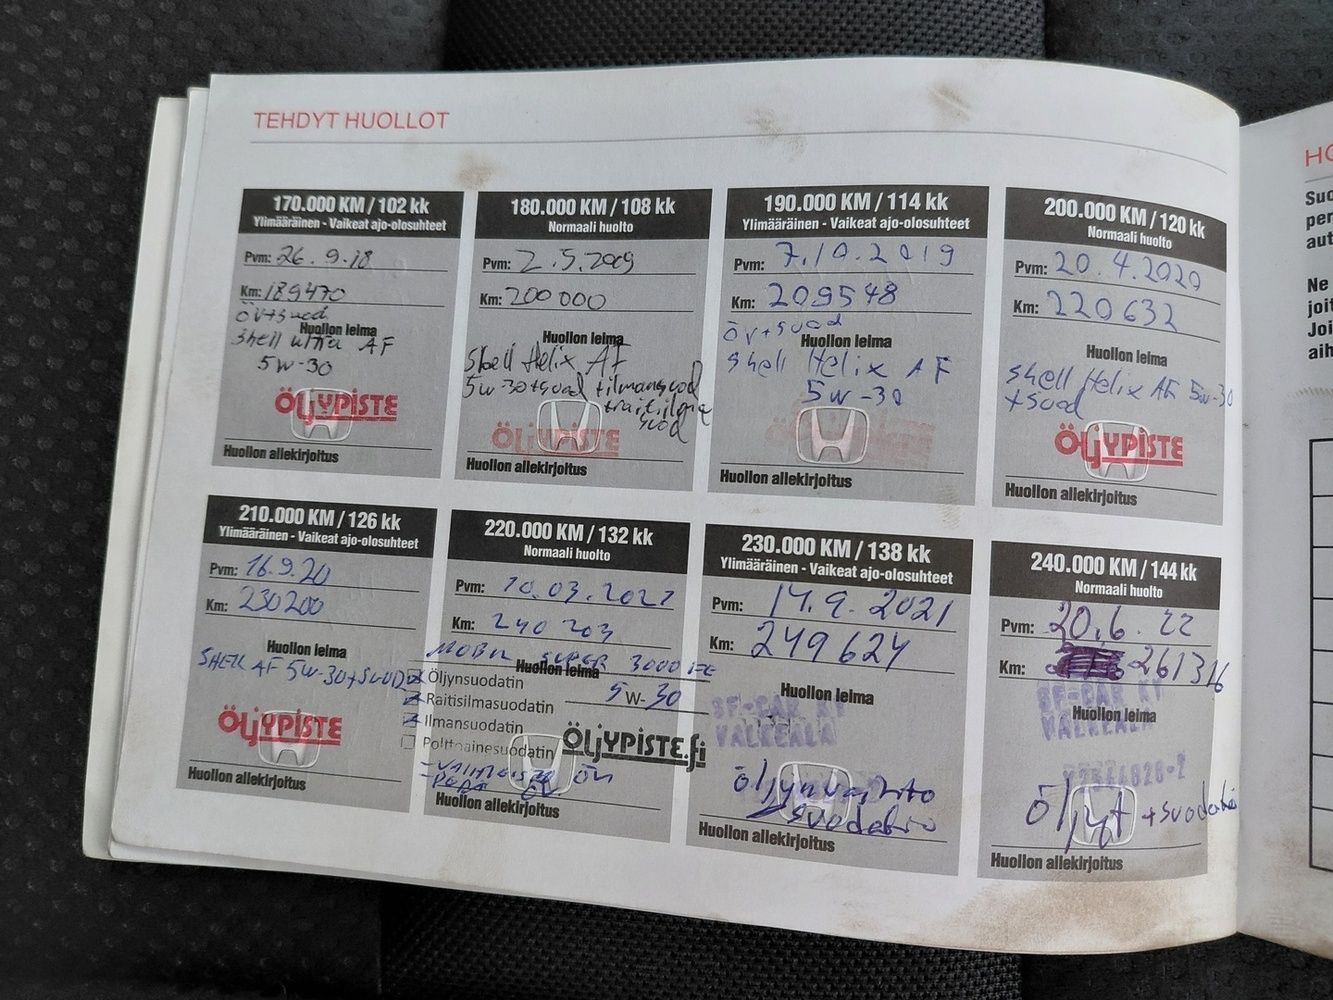 TEHDYT HUOLLOT
170.000 KM / 102 kk
Ylimääräinen - Vaikeat ajo-olosuhteet
Pvm: 26.9.18
Km: 189470
öv+suod
Huollon leima
Shell ultra AF
5W-30
ÖLJYPISTE
Huollon allekirjoitus
180.000 KM / 108 kk
Normaali huolto
Pvm: 2.5.2009
Km: 200000
Huollon leima
Shell Helix AF
5W-30+suod+ilmansuod
+raitisilma
suod
ÖLJYPISTE
Huollon allekirjoitus
190.000 KM / 114 kk
Ylimääräinen - Vaikeat ajo-olosuhteet
Pvm: 7.10.2019
Km: 209548
öv+suod
Huollon leima
Shell Helix AF
5W-30
Huollon allekirjoitus
200.000 KM / 120 kk
Normaali huolto
Pvm: 20.4.2020
Km: 220632
Huollon leima
Shell Helix AF 5W-30
+suod
ÖLJYPISTE
Huollon allekirjoitus
210.000 KM / 126 kk
Ylimääräinen - Vaikeat ajo-olosuhteet
Pvm: 16.9.20
Km: 230200
Huollon leima
SHELL AF 5W-30+SUOD
ÖLJYPISTE
Huollon allekirjoitus
220.000 KM / 132 kk
Normaali huolto
Pvm: 10.03.2021
Km: 240203
MOBIL SUPER 3000 FE
Huollon leima
Öljynsuodatin
5W-30
Raitisilmasuodatin
Ilmansuodatin
Polttoainesuodatin
ÖLJYPISTE.fi
Huollon allekirjoitus
230.000 KM / 138 kk
Ylimääräinen - Vaikeat ajo-olosuhteet
Pvm: 14.9.2021
Km: 249624
Huollon leima
BF-CAR KY
VALKEALA
öljynvaihto
+suodatin
Huollon allekirjoitus
240.000 KM / 144 kk
Normaali huolto
Pvm: 20.6.22
Km: 261316
BF-CAR KY
Huollon leima
VALKEALA
öljyt +suodatin
Huollon allekirjoitus
Suo
per
aut
Ne
joit
Joi
aih